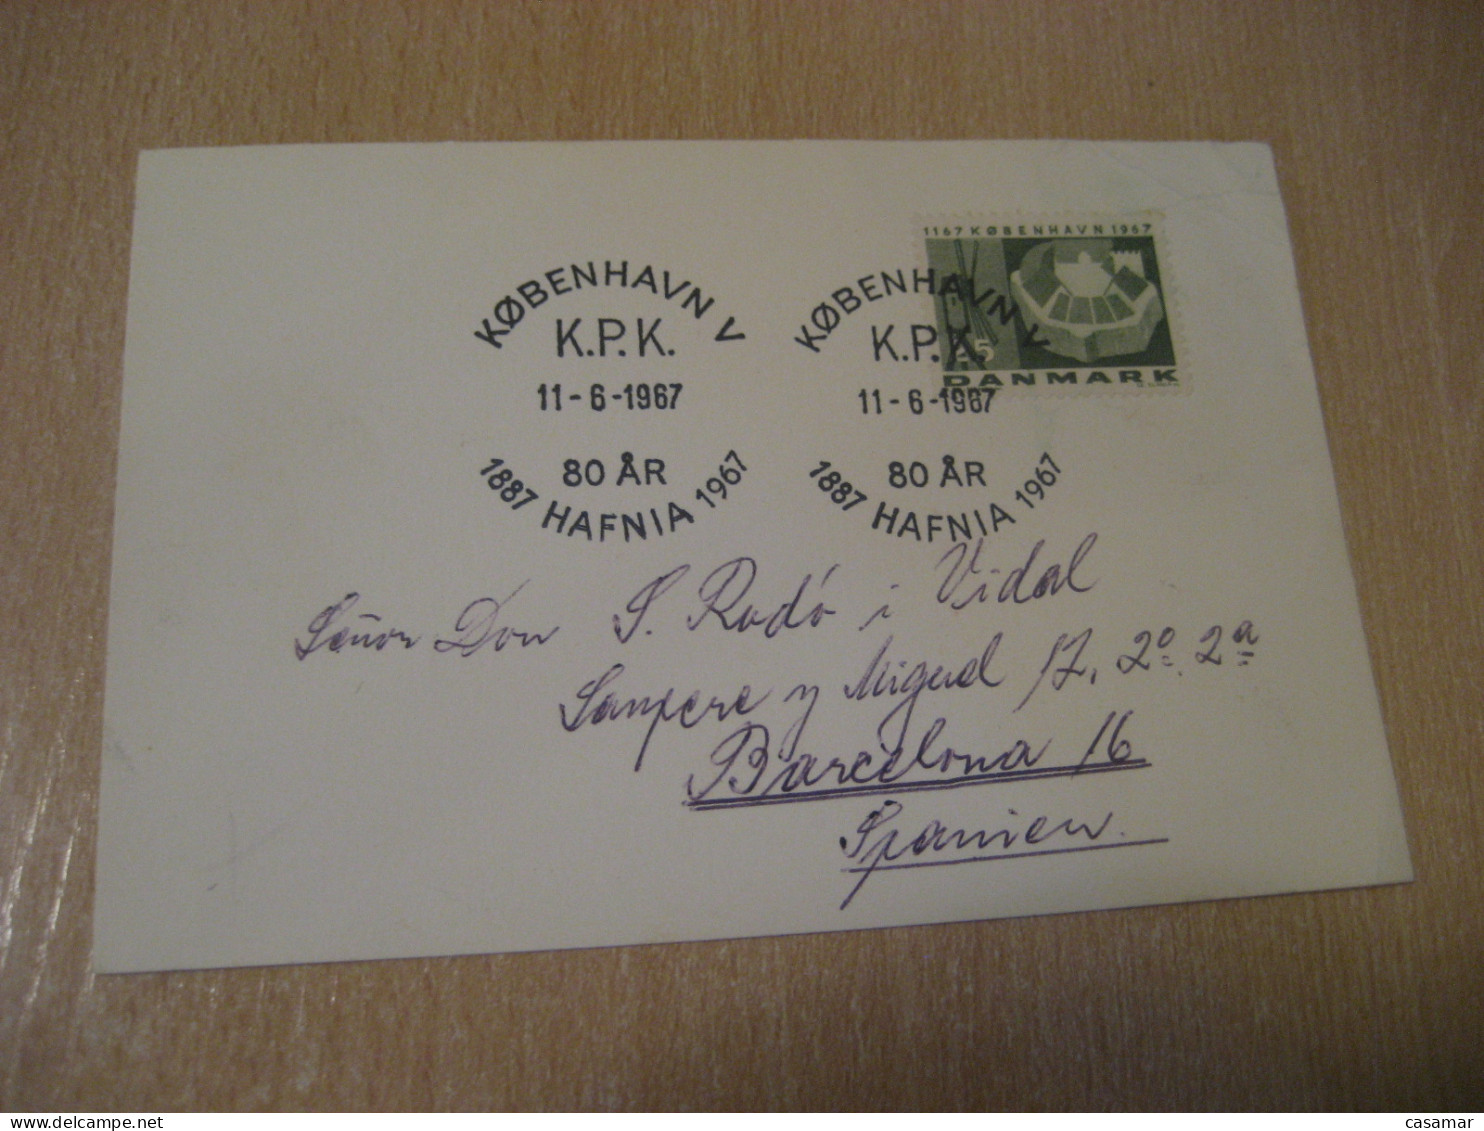 1167 KØBENHAVN 1967
25
DANMARK
KØBENHAVN V
K.P.K.
11-6-1967
80 ÅR
1887 HAFNIA 1967
KØBENHAVN V
K.P.K.
11-6-1967
80 ÅR
1887 HAFNIA 1967
Señor Don S. Rodó i Vidal
Sampere y Miguel 17, 2º 2ª
Barcelona 16
Spanien.
casamar